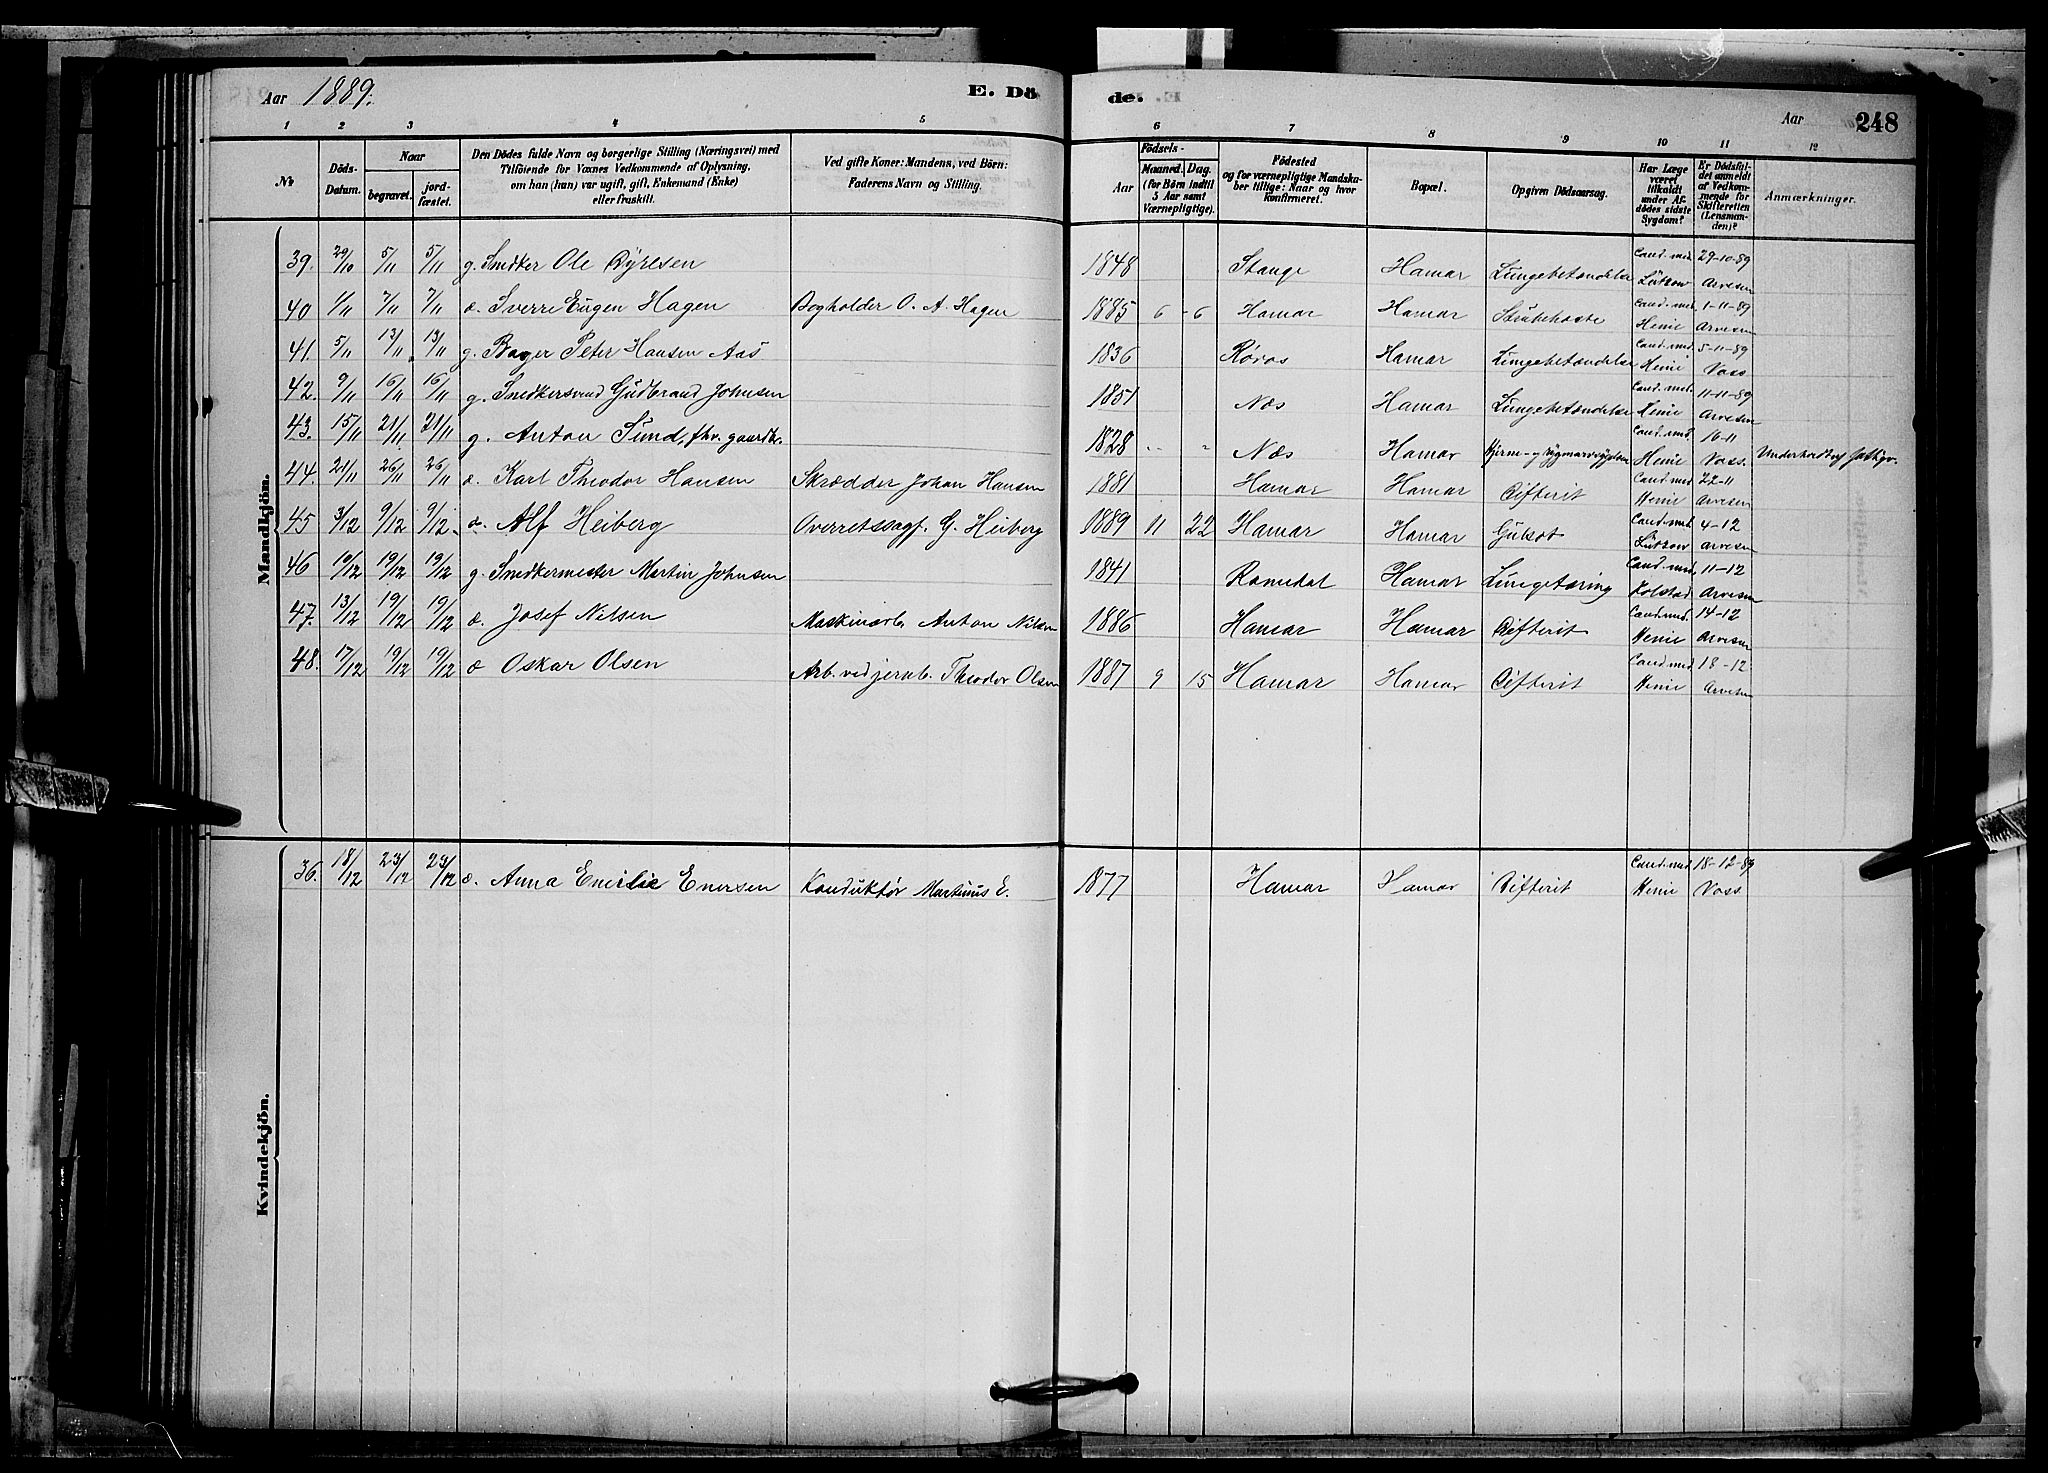 Aar 1889. E. Dö
de. Aar 248
1 2 3 4 5 6 7 8 9 10 11 12
No
Döds-Datum.
Naar
begravet.
jord-fæstet.
Den Dödes fulde Navn og borgerlige Stilling (Næringsvei) med
Tilföiende for Voxnes Vedkommende af Oplysning,
om han (hun) var ugift, gift, Enkemand (Enke)
eller fraskilt.
Ved gifte Koner: Mandens, ved Börn:
Faderens Navn og Stilling.
Födsels-
Aar
Maaned. Dag.
(for Börn indtil
5 Aar samt
Værnepligtige).
Födested
og for værnepligtige Mandska-
ber tillige: Naar og hvor
konfirmeret.
Bopæl.
Opgiven Dödsaarsag.
Har Læge
været
tilkaldt
under Af-
dödes sidste
Sygdom?
Er Dödsfal-
det anmeldt
af Vedkom-
mende for
Skifteretten
(Lensman-
den)?
Anmærkninger.
Mandkjön.
39. 29/10 5/11 5/11 g. Snedker Ole Byrlsen 1848 Stange Hamar Lungebetændelse Cand. med Lützow 29-10-89 Arvesen
40 1/11 7/11 7/11 æ. Sverre Eugen Hagen Bogholder O. A. Hagen 1885 6 -6 Hamar Hamar Strubehoste Cand. med Henie 1-11-89 Arvesen
41. 5/11 13/11 13/11 g. Bager Peter Hansen Aas 1836 Röros Hamar Lungebetændelse Cand. med Henie 5-11-89 Voss
42. 9/11 16/11 16/11 g. Snedkersvend Gudbrand Johnsen 1851 Næs Hamar Lungebetændelse Cand. med. Henie 11-11-89 Arvesen
43. 15/11 21/11 21/11 g. Anton Sund, fhv. gaardbr. 1828 - " Næs Hamar Hjerne- og Rygmarvssygdom Cand. med Henie 16-11 Voss. Underholdt af Fattigv.
44. 21/11 26/11 26/11 æ. Karl Theodor Hansen Skrædder Johan Hansen 1881 Hamar Hamar Difterit Cand. med Henie 22-11 Arvesen
45 3/12 9/12 9/12 æ. Alf Heiberg Overretssagf. G. Heiberg 1889 11 22 Hamar Hamar Gulsot Cand. med Lützow 4-12 Arvesen
46 10/12 19/12 19/12 g. Snedkermester Martin Johnsen 1841 Romedal Hamar Lungetæring Cand. med. Holstad 11-12 Arvesen
47. 13/12 19/12 19/12 æ. Josef Nilsen Maskinarb. Anton Nilsen 1886 Hamar Hamar Difterit Cand. med. Henie 14-12 Arvesen
48. 17/12 19/12 19/12 æ Oskar Olsen Arb. ved jernb. Theodor Olsen 1887 9 15 Hamar Hamar Difterit Cand. med Henie 18-12 Arvesen
Kvindekjön.
36. 18/12 23/12 23/12 æ. Anna Emilie Enersen Konduktør Martinus E. 1877 Hamar Hamar Difterit Cand. med Henie 18-12-89 Voss